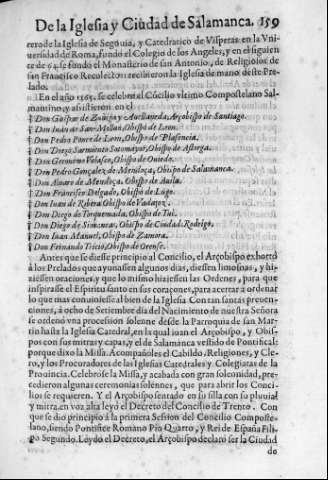 De la Iglesia y Ciudad de Salamanca. 159
rero de la Iglesia de Segouia, y Catedratico de Visperas en la Vni-
uersidad de Roma, fundó el Colegio de los Angeles, y en el siguien
te de 64. se fundó el Monasterio de san Antonio, de Religiosos de
san Francisco Recoletos: recibieron la Iglesia de mano deste Pre-
lado.
En el año 1565. se celebrò el Cōcilio vltimo Compostelano Sal-
mantino, y assistieron en el
¶ Don Gaspar de Zuñiga y Auellaneda, Arçobispo de Santiago.
¶ Don Iuan de San-Millan, Obispo de Leon.
¶ Don Pedro Ponce de Leon, Obispo de Plasencia.
¶ Don Diego Sarmiento Sotomayor, Obispo de Astorga.
¶ Don Geronimo Velasco, Obispo de Ouiedo.
¶ Don Pedro Gonçalez de Mendoça, Obispo de Salamanca.
¶ Don Aluaro de Mendoça, Obispo de Auila.
¶ Don Francisco Delgado, Obispo de Lugo.
¶ Don Iuan de Ribera, Obispo de Vadajoz.
¶ Don Diego de Torquemada, Obispo de Tui.
¶ Don Diego de Simancas, Obispo de Ciudad-Rodrigo.
¶ Don Iuan Manuel, Obispo de Zamora.
¶ Don Fernando Tricio, Obispo de Orense.
Antes que se diesse principio al Concilio, el Arçobispo exhortó
a los Prelados que ayunassen algunos dias, diessen limosnas, y hi-
ziessen oraciones, y que lo mismo hiziessen las Ordenes, para que
inspirasse el Espiritu santo en sus coraçones, para acertar a ordenar
lo que mas conuiniesse al bien de la Iglesia. Con tan santas preuen-
ciones, à ocho de Setiembre dia del Nacimiento de nuestra Señora
se ordenó vna procession solene desde la Parroquia de san Mar-
tin hasta la Iglesia Catedral, en la qual iuan el Arçobispo, y Obis-
pos con sus mitras y capas, y el de Salamanca vestido de Pontifical:
porque dixo la Missa. Acompañoles el Cabildo, Religiones, y Cle-
ro, y los Procuradores de las Iglesias Catedrales y Colegiatas de la
Prouincia. Celebròse la Missa, y acabada con gran solenidad, pre-
cedieron algunas ceremonias solennes, que para abrir los Conci-
lios se requieren. Y el Arçobispo sentado en su silla con su pluuial
y mitra, en voz alta leyó el Decreto del Concilio de Trento. Con
que se dio principio à la primera Session del Concilio Composte-
lano, siendo Pontifice Romano Pio Quarto, y Rei de España Fili-
po Segundo. Leydo el Decreto, el Arçobispo declarò ser la Ciudad
de